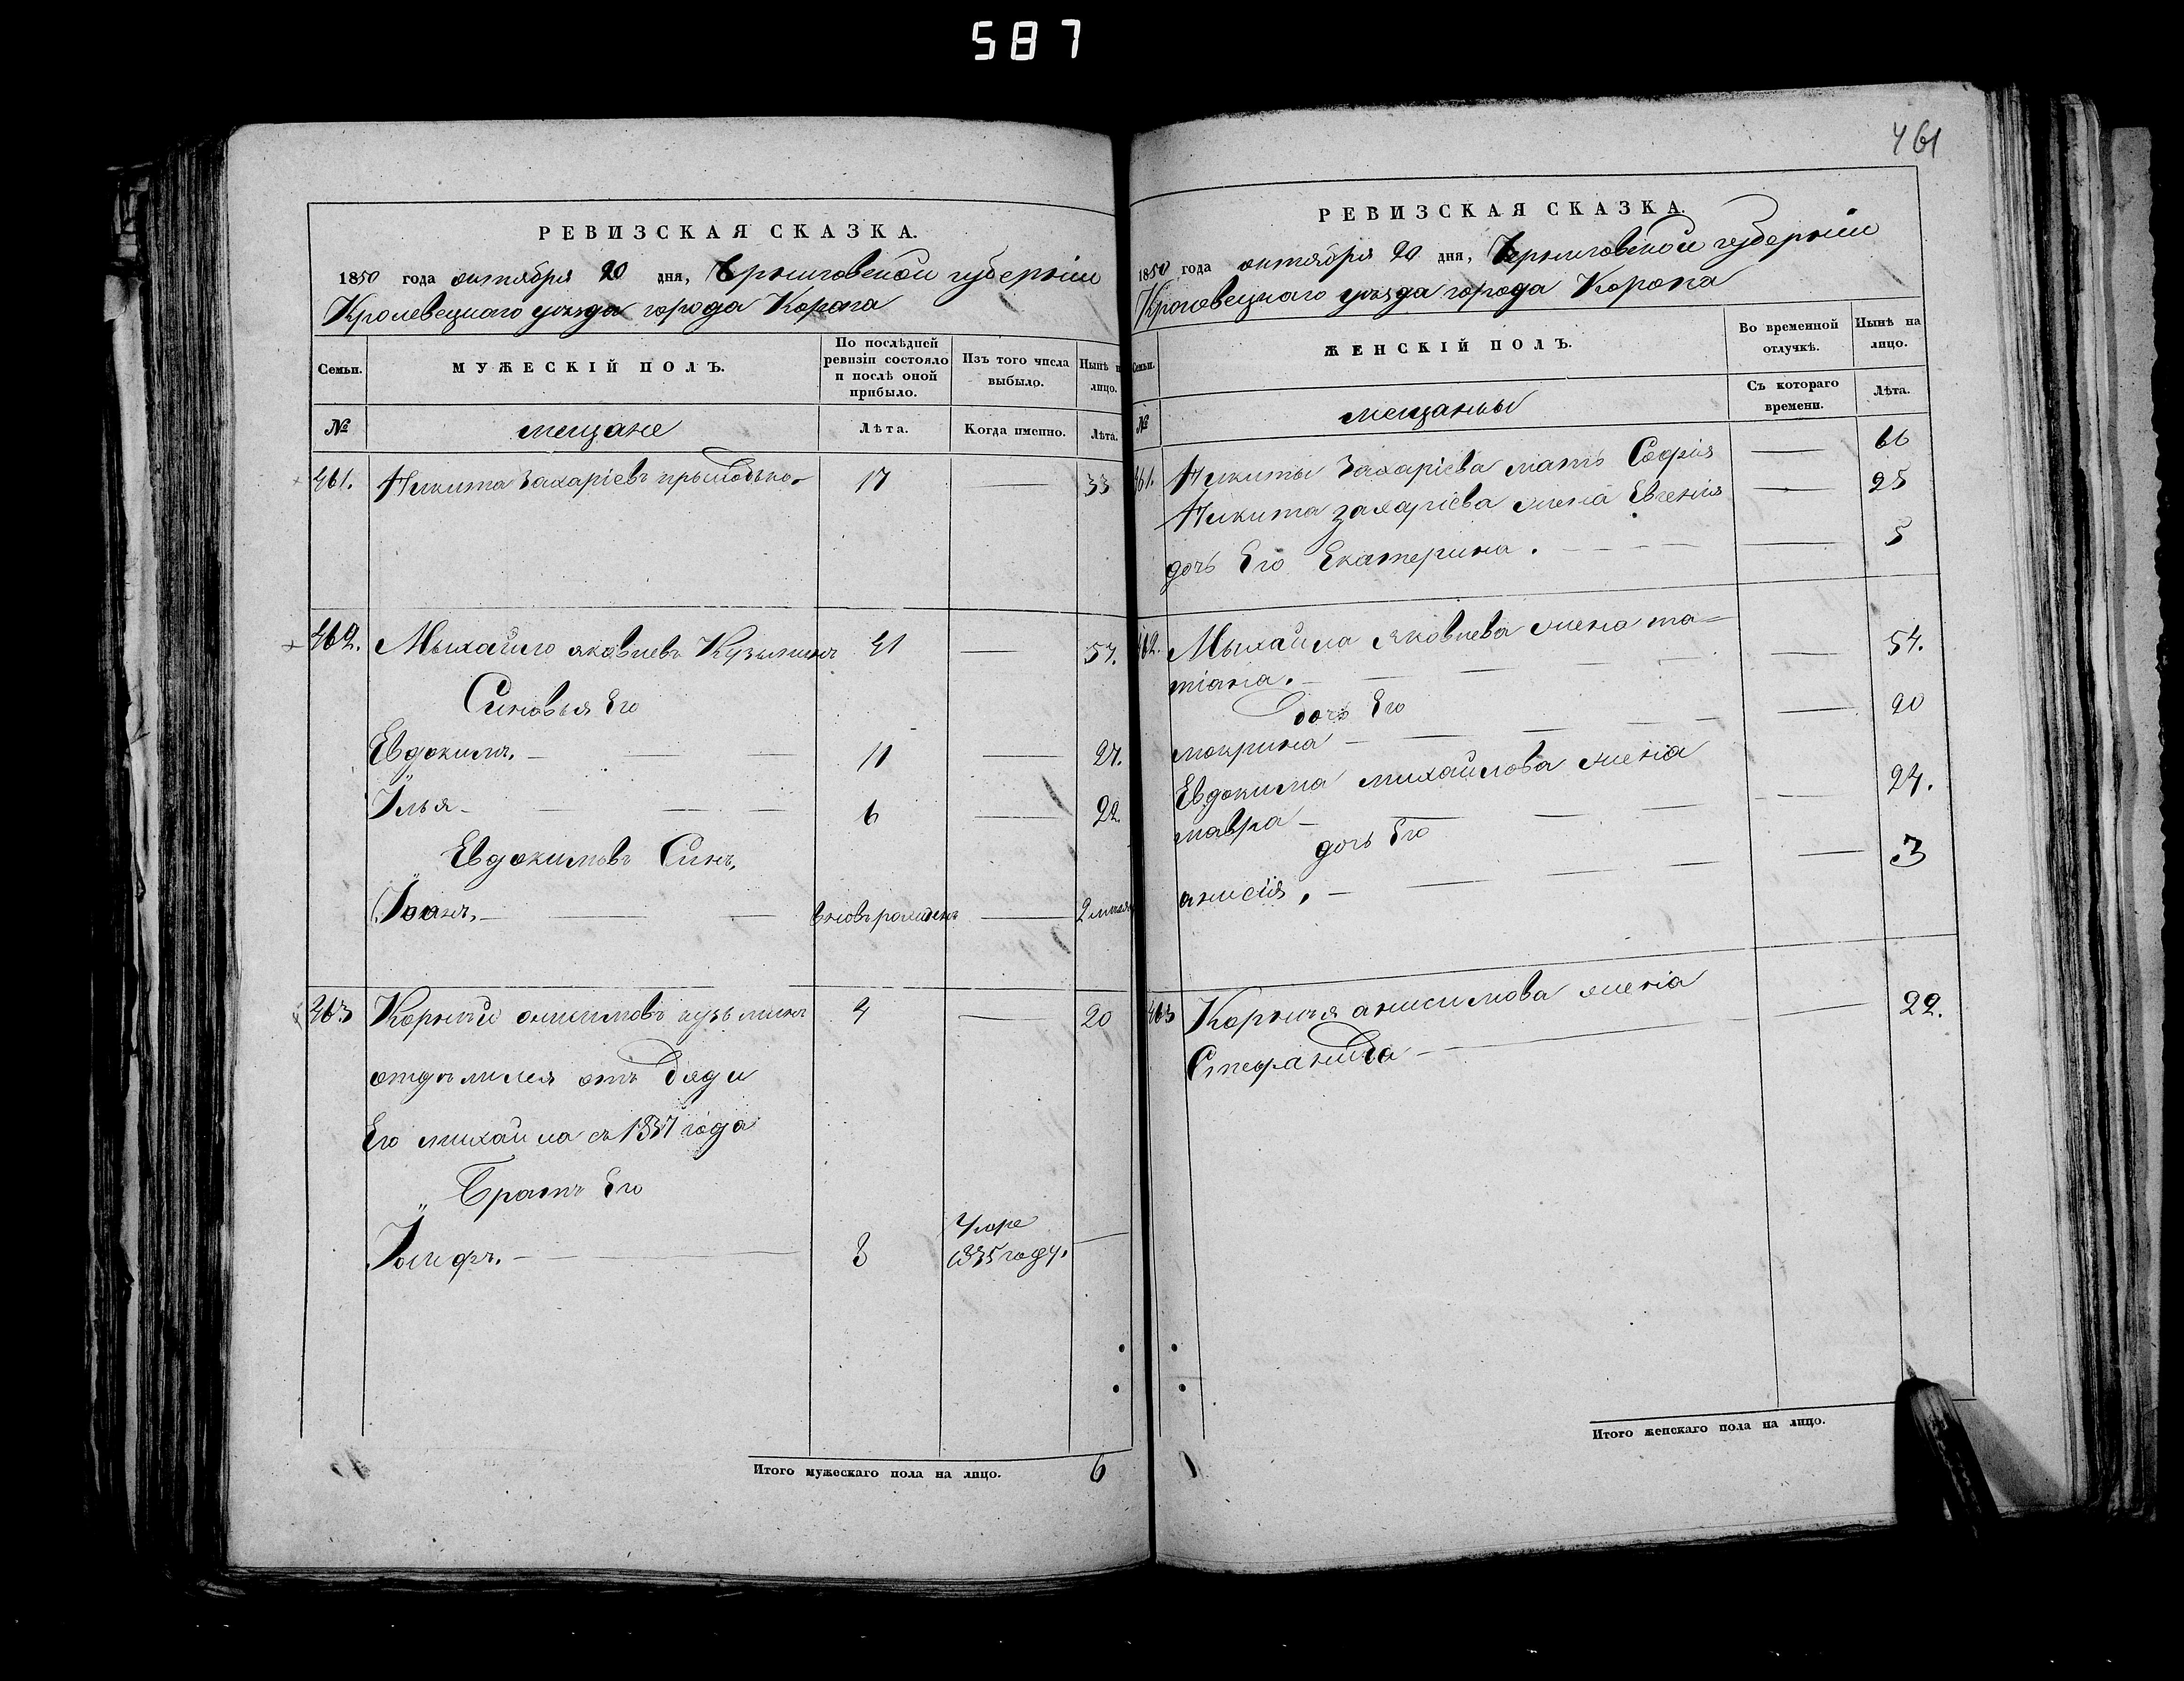 587
461
РЕВИЗСКАЯ СКАЗКА.
1850 года октября 20 дня, Черниговской губерніи
Кролевецкаго уезда города Коропа
Семьи.
МУЖЕСКІЙ ПОЛЪ.
По послѣдней ревизіи состояло и послѣ оной прибыло.
Изъ того числа выбыло.
Нынѣ н лицо.
№
мещане
Лѣта.
Когда именно.
Лѣта.
461. Никита Захаріевъ 17 33
462. Михайло яковлевъ Кузьминъ 41 57.
Синовья Его
Евдокимъ. 11 27.
Илья 6 22.
Евдокимовъ Синъ,
Іоанъ, вновьрожденъ 2
463 Корнѣй онисимовъ кузьминъ 4 20
отделился отъ дяди
Его михайла съ 1837 года
Братъ Его
Іосифъ. 3 Умре 1835 году.
Итого мужескаго пола на лицо. 6
РЕВИЗСКАЯ СКАЗКА.
1850 года октября 20 дня, Черниговской губерніи
Кролевецкаго уезда города Коропа
Семьи.
ЖЕНСКІЙ ПОЛЪ.
Во временной отлучкѣ.
Нынѣ на лицо.
Съ котораго времени.
Лѣта.
№
мещанки
461. Никиты Захаріева мать Софія 66
Никита захаріева жена Евгенія 25
дочь Его Екатерина. 5
462. Михайла яковлева жена та-
тіана. 54.
дочь Его
мокрина 20
Евдокима михайлова жена
мавра 24.
дочь Его
анисія, 3
463 Корнѣя анисимова жена
Стефанида 22.
Итого женскаго пола на лицо.